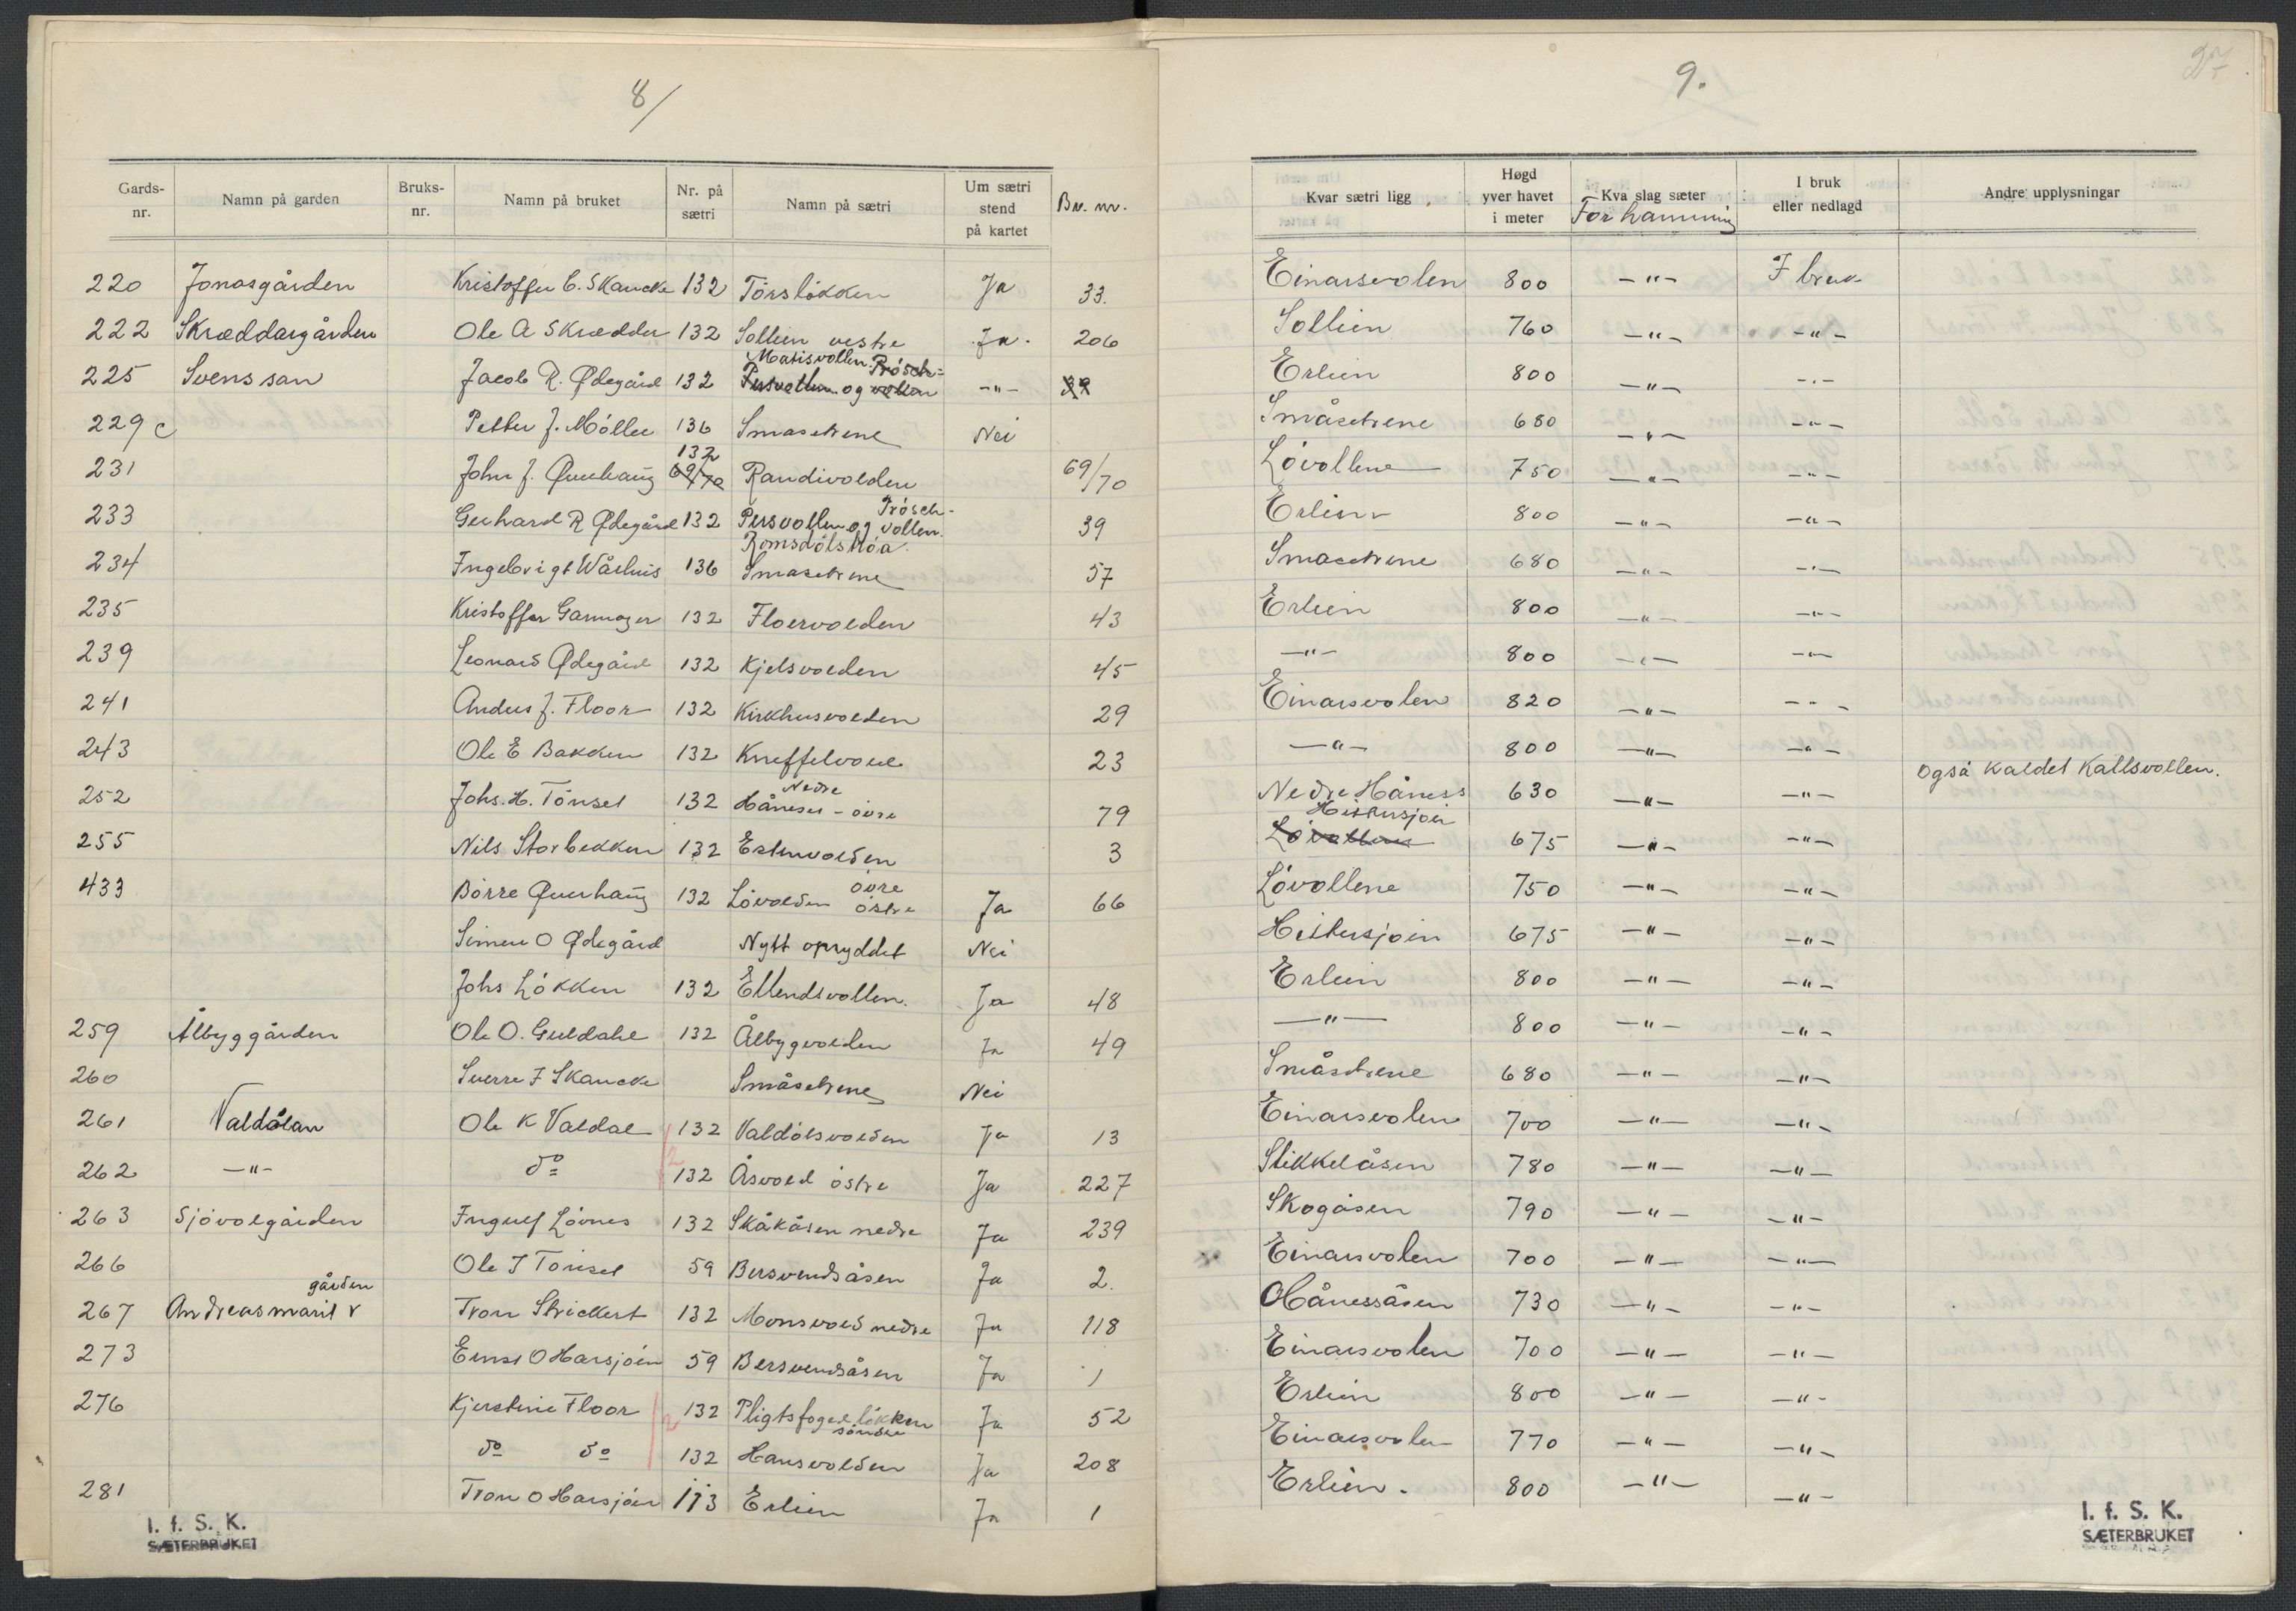 8/
Gards-nr. Namn på garden Bruks-nr. Namn på bruket Nr. på sætri Namn på sætri Um sætri stend på kartet Br. nr.
220 Jonasgården Kristoffer C. Skancke 132 Törslökken Ja 33.
222 Skræddargården Ole A Skrædder 132 Sollien vestre Ja. 206
225 Svenssan Jacob R. Ødegård 132 Matisvollen. Prösch= Persvollen og vollen -"- 39
229 c Petter J. Möller 136 Smasetrene Nei
231 John J. Qverhaug 132 69/70 Randivolden 69/70
233 Gerhard R Ødegård 132 Persvollen og Prösch-vollen. 39
234 Ingebrigt Wårhus 136 Romsdölsflöa Smasetrene 57
235 Kristoffer Garmager 132 Floervolden 43
239 Leonard Ødegård 132 Kjelsvolden 45
241 Anders J. Floor 132 Kirkhusvolden 29
243 Ole E Bakken 132 Kneffelvold 23
252 Johs. H. Tönset 132 Håneset - Nedre övre 79
255 Nils Storbekken 132 Estenvolden 3
433 Börre Qverhaug 132 Lövolden övre östre Ja 66
Simen O Ødegård Nytt opryddet Nei
Johs Lökken 132 Ellendsvollen. Ja 48
259 Ålbyggården Ole O. Guldahl 132 Ålbygvolden Ja 49
260 Sverre J Skancke Småsetrene Nei
261 Valdalan Ole K Valdal 132 Valdölsvolden Ja 13
262 -"- do 2 132 Åsvold östre Ja 227
263 Sjövolgården Ingulf Lövnes 132 Skåkåsen nedre Ja 239
266 Ole J Tönset 59 Bersvendsåsen Ja 2.
267 Andreasmarit gården Tron Strickert 132 Monsvold nedre Ja 118
273 Ernst O Harsjöen 59 Bersvendsåsen Ja 1
276 Kjerstine Floor 2 132 Pligtsfogedlökken Ja 52
do do 132 söndre Hansvolden Ja 208
281 Tron O Harsjöen 113 Erlien Ja 1
I. f. S. K.
SÆTERBRUKET
9.
27
Kvar sætri ligg Høgd yver havet i meter Kva slag sæter I bruk eller nedlagd Andre upplysningar
For hamning
Einarsvolen 800 -"- I bruk
Sollien 760 -"- -"-
Erlien 800 -"- -"-
Småsetrene 680 -"- -"-
Lövollene 750 -"- -"-
Erlien 800 -"- -"-
Smasetrene 680 -"- -"-
Erlien 800 -"- -"-
-"- 800 -"- -"-
Einarsvolen 820 -"- -"-
-"- 800 -"- -"-
Nedre Håness 630 -"- -"- også kaldet Kallsvollen.
Heittersjöen Lövollene 675 -"- -"-
Lövollene 750 -"- -"-
Heittersjöen 675 -"- -"-
Erlien 800 -"- -"-
-"- 800 -"- -"-
Småsetrene 680 -"- -"-
Einarsvolen 700 -"- -"-
Stikkelåsen 780 -"- -"-
Skogåsen 790 -"- -"-
Einarsvolen 700 -"- -"-
Hånessåsen 730 -"- -"-
Einarsvolen 700 -"- -"-
Erlien 800 -"- -"-
Einarsvolen 770 -"- -"-
Erlien. 800 -"- -"-
I. f. S. K.
SÆTERBRUKET